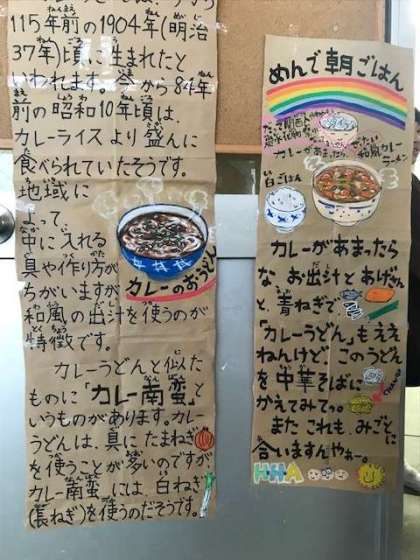 115年前の1904年(明治
37年)頃に生まれたと
いわれます。今から84年
前の昭和10年頃は、
カレーライスより盛んに
食べられていたそうです。
地域に
よって
中に入れる
具や作り方が
ちがいますが
和風の出汁を使うのが
特徴です。
カレーのおうどん
カレーうどんと似た
ものに「カレー南蛮」と
いうものがあります。カレー
うどんは、具にたまねぎ
を使うことが多いのですが、
カレー南蛮には、白ねぎ
(長ねぎ)を使うのだそうです。
めんで朝ごはん
カレーがあまったら
和風カレー
ラーメン
白ごはん
カレーがあまったら
な お出汁とあげさん
と、青ねぎで
「カレーうどん」もええ
ねんけど このうどん
を中華そばに
かえてみてっ。
また これも、みごとに
合いますんやわー。
HHA